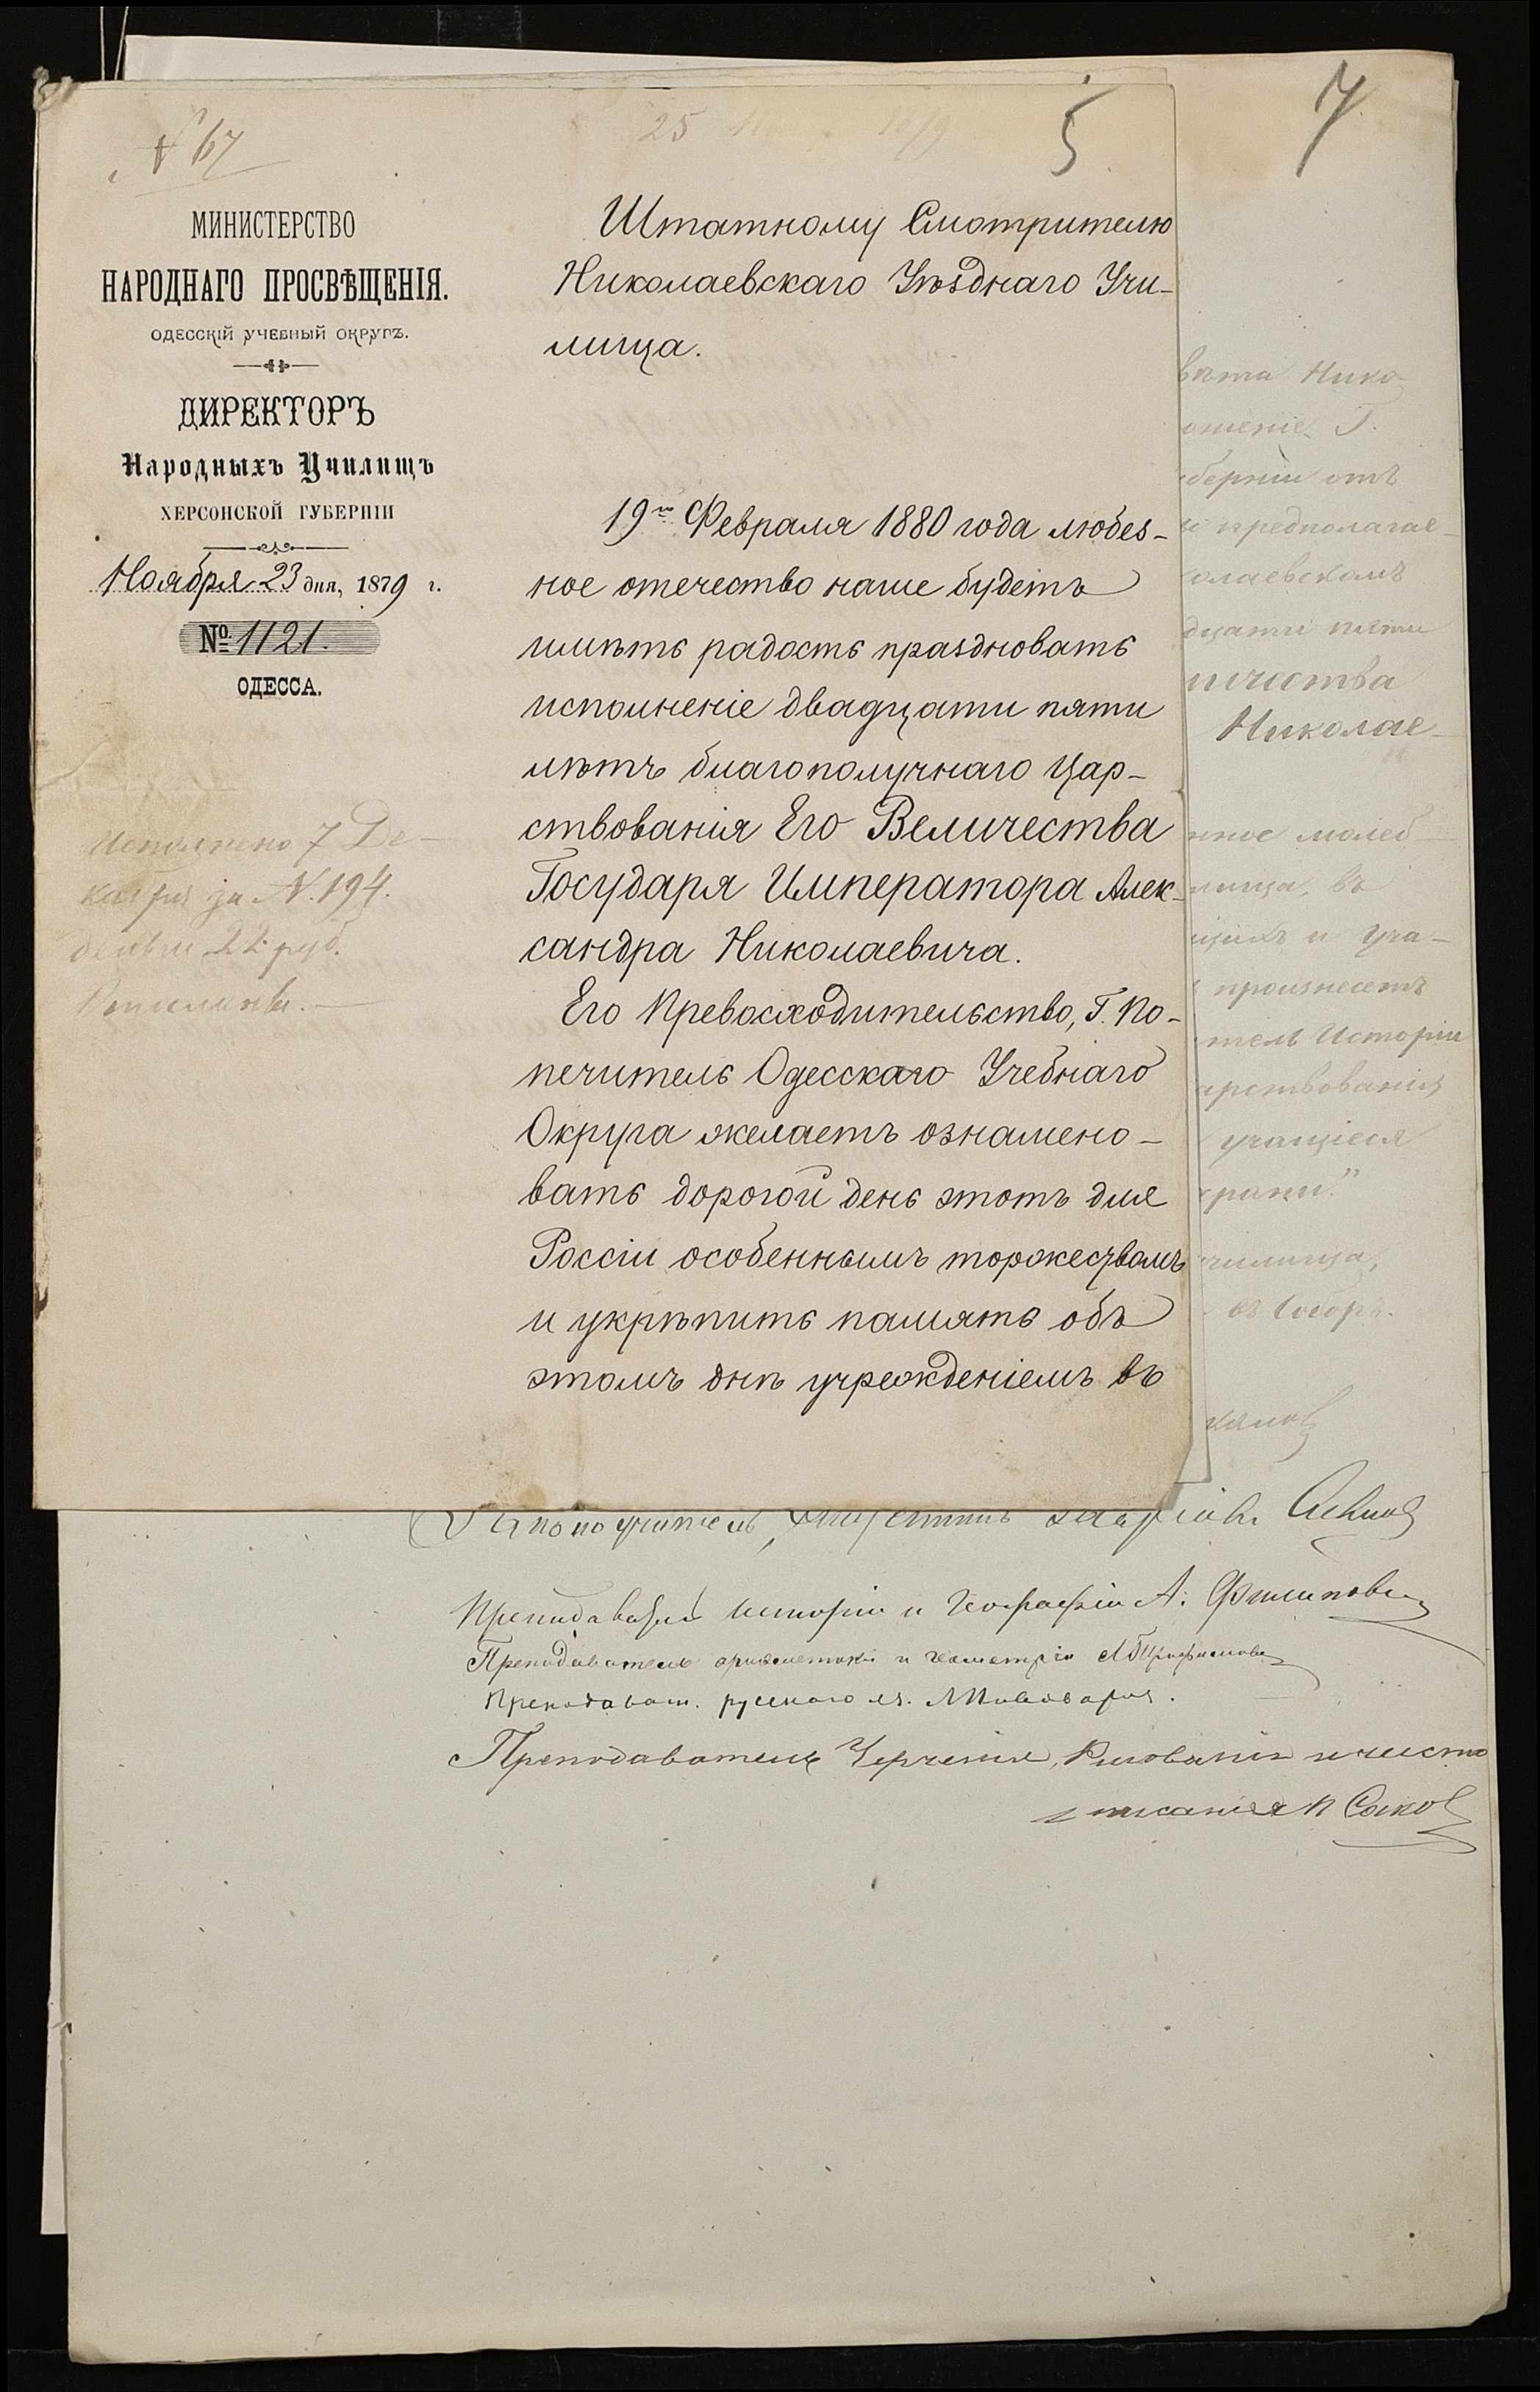 № 67
5
7
МИНИСТЕРСТВО
НАРОДНАГО ПРОСВѢЩЕНІЯ.
ОДЕССКІЙ УЧЕБНЫЙ ОКРУГЪ.
ДИРЕКТОРЪ
Народныхъ Училищъ
ХЕРСОНСКОЙ ГУБЕРНІИ
Ноября 23 дня, 1879 г.
№ 1121.
ОДЕССА.
Исполнено 7 Де-
кабря за N. 194.
22 руб.
Штатному Смотрителю
Николаевскаго Уѣзднаго Учи-
лища.
19го Февраля 1880 года любез-
ное отечество наше будетъ
имѣть радость праздновать
исполненіе двадцати пяти
лѣтъ благополучнаго Цар-
ствованія Его Величества
Государя Императора Алек-
сандра Николаевича.
Его Превосходительство, Г. По-
печитель Одесскаго Учебнаго
Округа желаетъ ознамено-
вать дорогой день этотъ для
Россіи особеннымъ торжествомъ
и укрѣпить память объ
этомъ днѣ учрежденіемъ въ
вѣта Нико-
ошеніе Г.
берніи отъ
предполагае-
олаевскомъ
дцати пяти
ичества
Николае-
нное молеб
лища, въ
щихъ и уча-
произнесетъ
тель Исторіи
арствованія
учащіеся
храни"
училища,
въ Соборѣ.
Законоучитель,
Преподаватель исторіи и Географіи А. Филипповъ
Преподаватель ариѳметики и геометріи
Преподават. русскаго яз.
Преподаватель Черченія, Рисованія и чисто
писанія